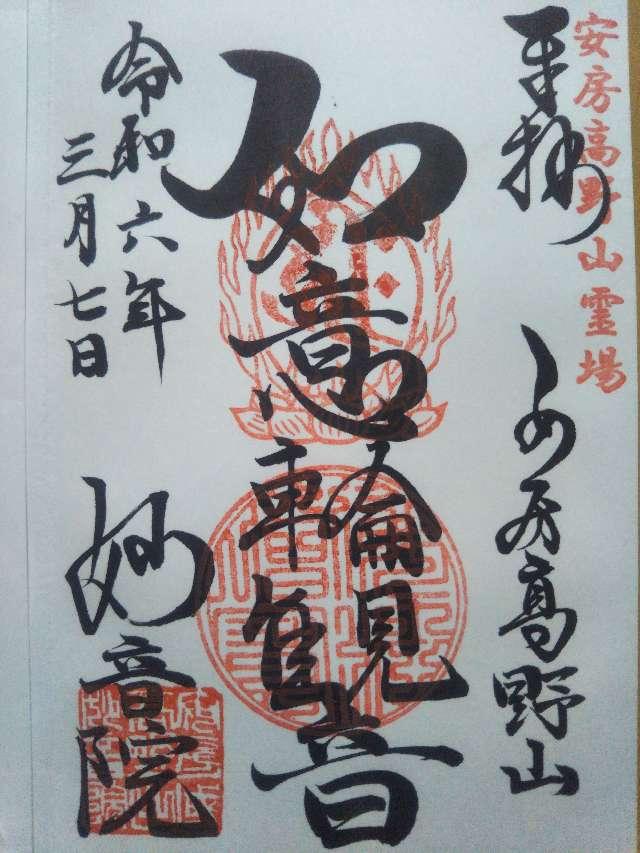 安房高野山霊場
奉拝
あ房高野山
如意輪観音
令和六年
三月七日
妙音院